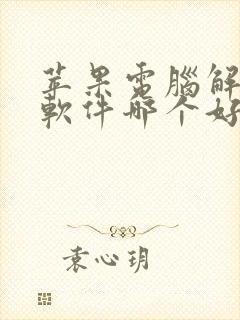 苹果電腦解
軟件哪个好
袁心玥